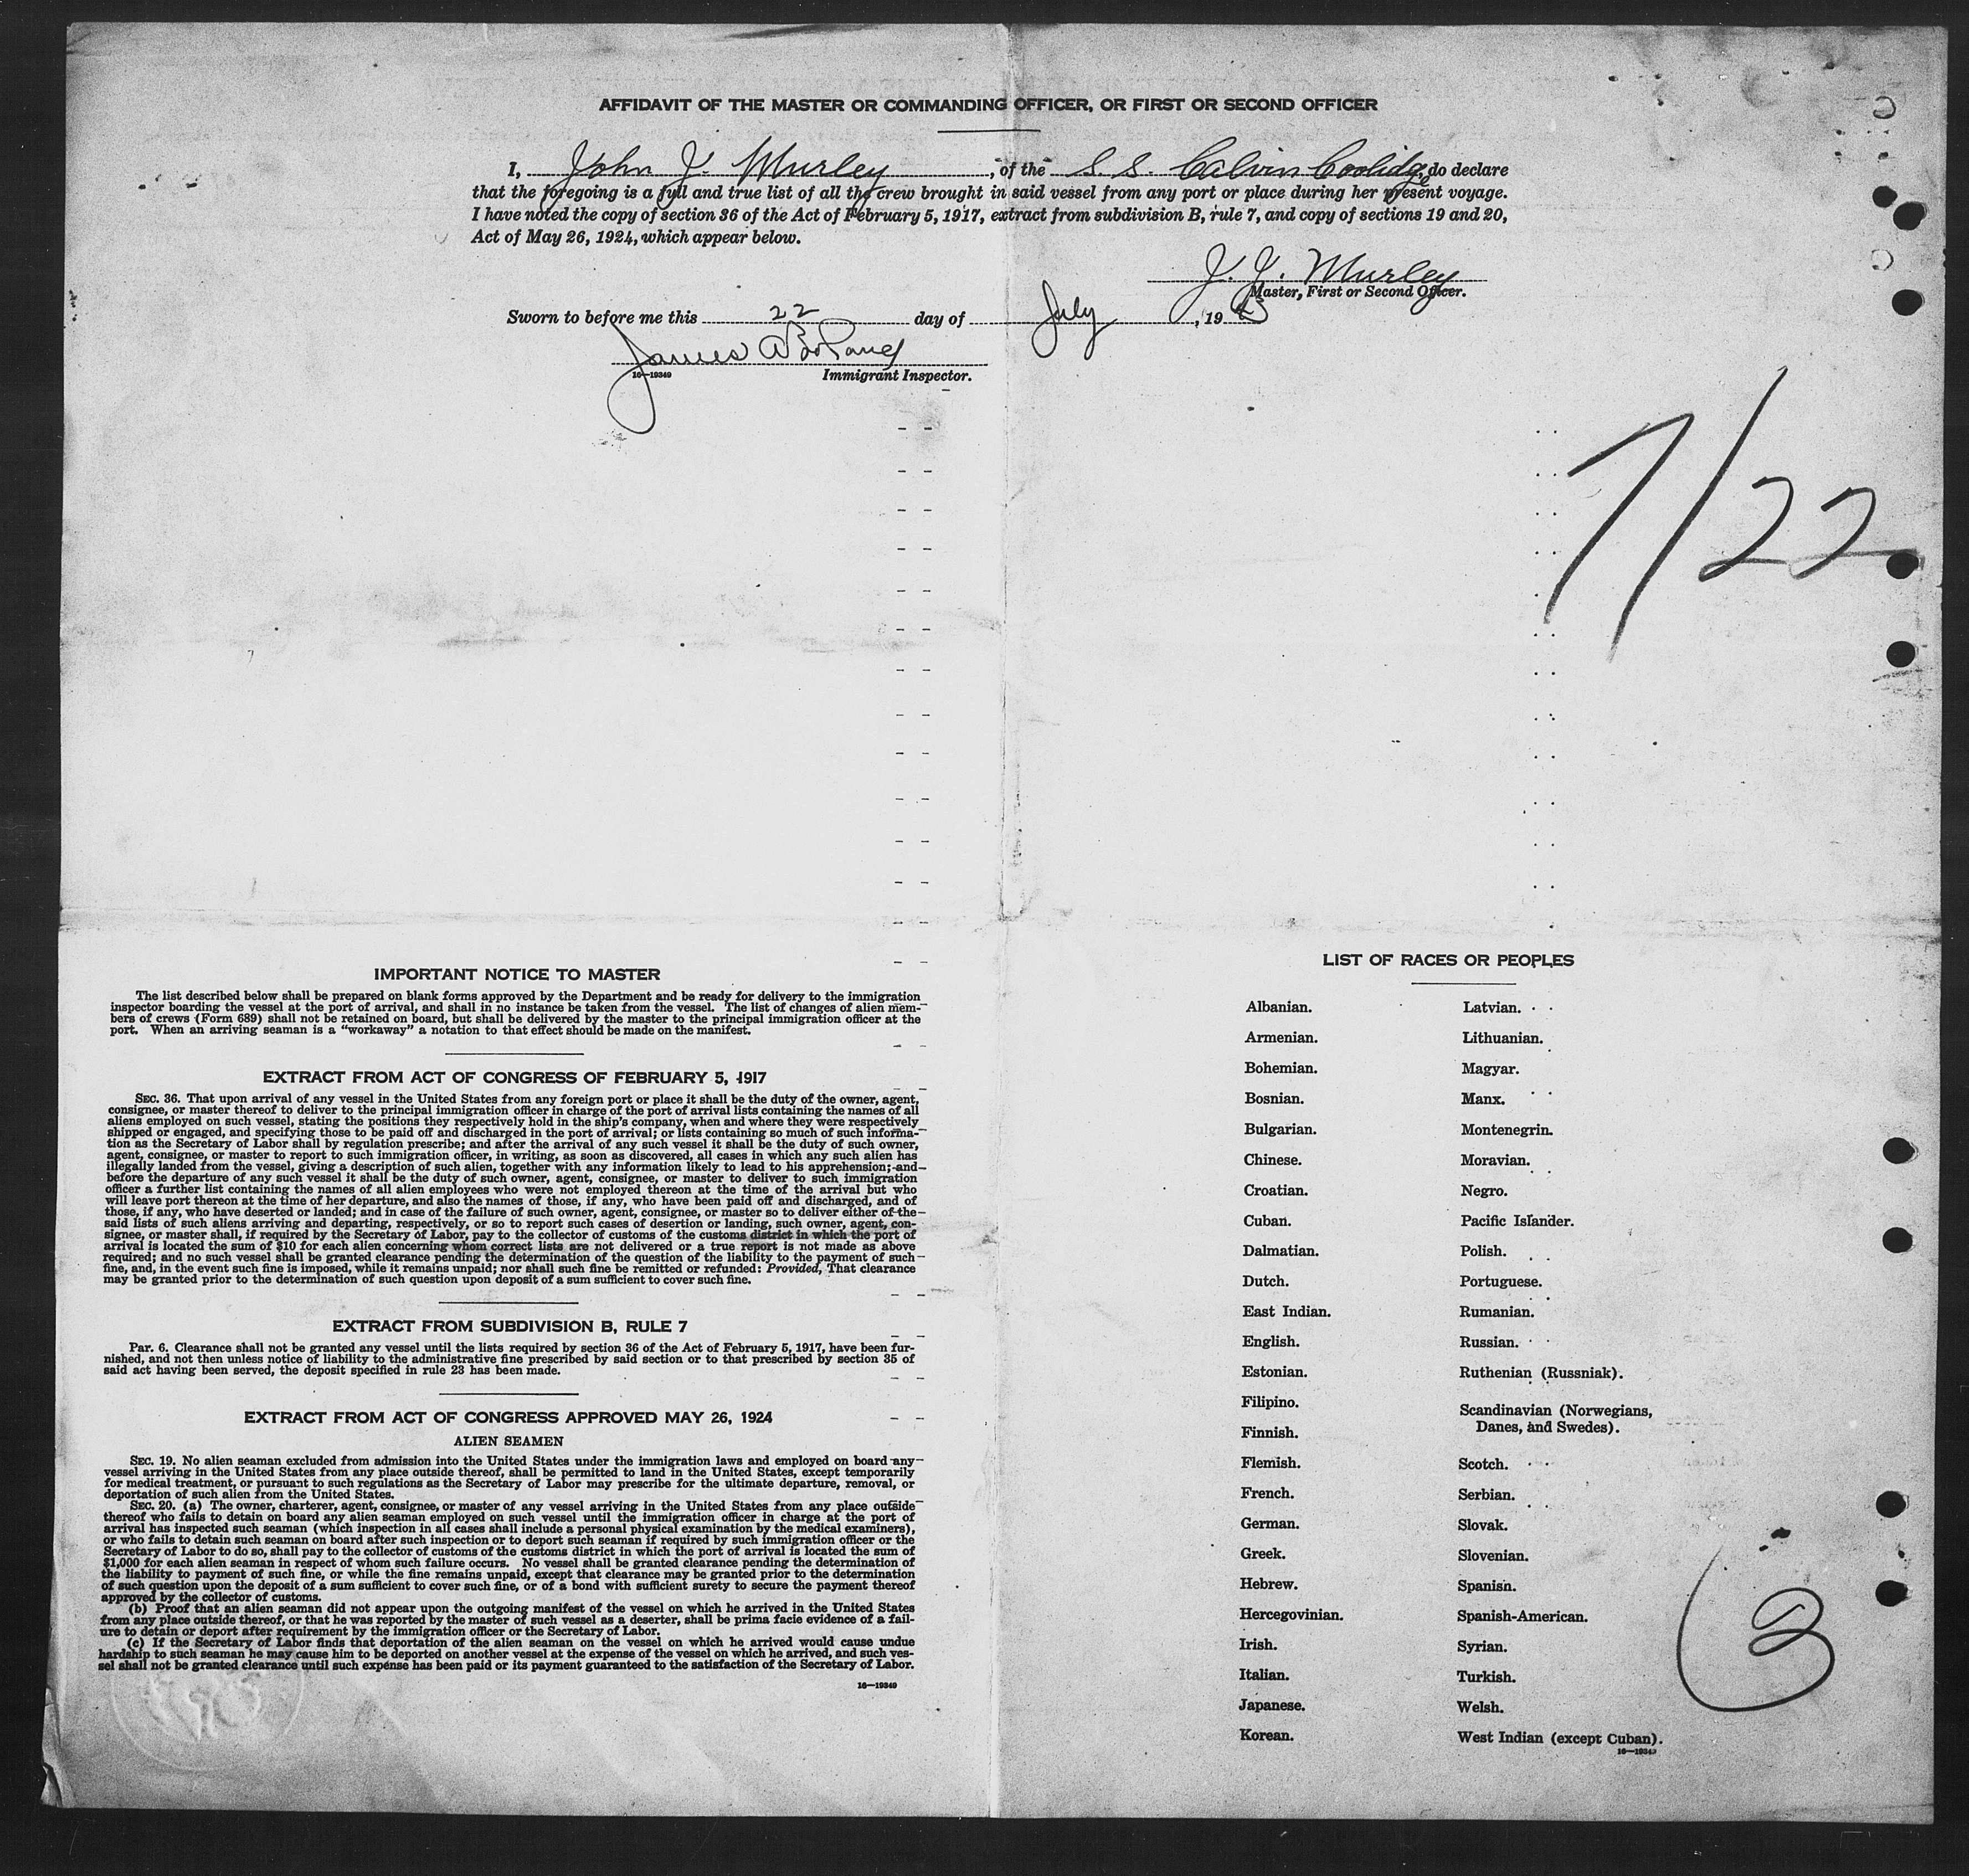 AFFIDAVIT OF THE MASTER OR COMMANDING OFFICER, OR FIRST OR SECOND OFFICER
I, John J. Murley, of the S. S. Calvin Coolidge, do declare
that the foregoing is a full and true list of all the crew brought in said vessel from any port or place during her present voyage.
I have noted the copy of section 36 of the Act of February 5, 1917, extract from subdivision B, rule 7, and copy of sections 19 and 20,
Act of May 26, 1924, which appear below.
J. J. Murley
Master, First or Second Officer.
Sworn to before me this 22 day of July, 19
James
16—19349 Immigrant Inspector.
7/22
IMPORTANT NOTICE TO MASTER
The list described below shall be prepared on blank forms approved by the Department and be ready for delivery to the immigration
inspector boarding the vessel at the port of arrival, and shall in no instance be taken from the vessel. The list of changes of alien mem-
bers of crews (Form 689) shall not be retained on board, but shall be delivered by the master to the principal immigration officer at the
port. When an arriving seaman is a "workaway" a notation to that effect should be made on the manifest.
EXTRACT FROM ACT OF CONGRESS OF FEBRUARY 5, 1917
SEC. 36. That upon arrival of any vessel in the United States from any foreign port or place it shall be the duty of the owner, agent,
consignee, or master thereof to deliver to the principal immigration officer in charge of the port of arrival lists containing the names of all
aliens employed on such vessel, stating the positions they respectively hold in the ship's company, when and where they were respectively
shipped or engaged, and specifying those to be paid off and discharged in the port of arrival; or lists containing so much of such informa-
tion as the Secretary of Labor shall by regulation prescribe; and after the arrival of any such vessel it shall be the duty of such owner,
agent, consignee, or master to report to such immigration officer, in writing, as soon as discovered, all cases in which any such alien has
illegally landed from the vessel, giving a description of such alien, together with any information likely to lead to his apprehension; and
before the departure of any such vessel it shall be the duty of such owner, agent, consignee, or master to deliver to such immigration
officer a further list containing the names of all alien employees who were not employed thereon at the time of the arrival but who
will leave port thereon at the time of her departure, and also the names of those, if any, who have been paid off and discharged, and of
those, if any, who have deserted or landed; and in case of the failure of such owner, agent, consignee, or master so to deliver either of the
said lists of such aliens arriving and departing, respectively, or so to report such cases of desertion or landing, such owner, agent, con-
signee, or master shall, if required by the Secretary of Labor, pay to the collector of customs of the customs district in which the port of
arrival is located the sum of $10 for each alien concerning whom correct lists are not delivered or a true report is not made as above
required; and no such vessel shall be granted clearance pending the determination of the question of the liability to the payment of such
fine, and, in the event such fine is imposed, while it remains unpaid; nor shall such fine be remitted or refunded: Provided, That clearance
may be granted prior to the determination of such question upon deposit of a sum sufficient to cover such fine.
EXTRACT FROM SUBDIVISION B, RULE 7
Par. 6. Clearance shall not be granted any vessel until the lists required by section 36 of the Act of February 5, 1917, have been fur-
nished, and not then unless notice of liability to the administrative fine prescribed by said section or to that prescribed by section 35 of
said act having been served, the deposit specified in rule 23 has been made.
EXTRACT FROM ACT OF CONGRESS APPROVED MAY 26, 1924
ALIEN SEAMEN
SEC. 19. No alien seaman excluded from admission into the United States under the immigration laws and employed on board any
vessel arriving in the United States from any place outside thereof, shall be permitted to land in the United States, except temporarily
for medical treatment, or pursuant to such regulations as the Secretary of Labor may prescribe for the ultimate departure, removal, or
deportation of such alien from the United States.
SEC. 20. (a) The owner, charterer, agent, consignee, or master of any vessel arriving in the United States from any place outside
thereof who fails to detain on board any alien seaman employed on such vessel until the immigration officer in charge at the port of
arrival has inspected such seaman (which inspection in all cases shall include a personal physical examination by the medical examiners),
or who fails to detain such seaman on board after such inspection or to deport such seaman if required by such immigration officer or the
Secretary of Labor to do so, shall pay to the collector of customs of the customs district in which the port of arrival is located the sum of
$1,000 for each alien seaman in respect of whom such failure occurs. No vessel shall be granted clearance pending the determination of
the liability to payment of such fine, or while the fine remains unpaid, except that clearance may be granted prior to the determination
of such question upon the deposit of a sum sufficient to cover such fine, or of a bond with sufficient surety to secure the payment thereof
approved by the collector of customs.
(b) Proof that an alien seaman did not appear upon the outgoing manifest of the vessel on which he arrived in the United States
from any place outside thereof, or that he was reported by the master of such vessel as a deserter, shall be prima facie evidence of a fail-
ure to detain or deport after requirement by the immigration officer or the Secretary of Labor.
(c) If the Secretary of Labor finds that deportation of the alien seaman on the vessel on which he arrived would cause undue
hardship to such seaman he may cause him to be deported on another vessel at the expense of the vessel on which he arrived, and such ves-
sel shall not be granted clearance until such expense has been paid or its payment guaranteed to the satisfaction of the Secretary of Labor.
16—19349
LIST OF RACES OR PEOPLES
Albanian.
Armenian.
Bohemian.
Bosnian.
Bulgarian.
Chinese.
Croatian.
Cuban.
Dalmatian.
Dutch.
East Indian.
English.
Estonian.
Filipino.
Finnish.
Flemish.
French.
German.
Greek.
Hebrew.
Hercegovinian.
Irish.
Italian.
Japanese.
Korean.
Latvian.
Lithuanian.
Magyar.
Manx.
Montenegrin.
Moravian.
Negro.
Pacific Islander.
Polish.
Portuguese.
Rumanian.
Russian.
Ruthenian (Russniak).
Scandinavian (Norwegians,
Danes, and Swedes).
Scotch.
Serbian.
Slovak.
Slovenian.
Spanish.
Spanish-American.
Syrian.
Turkish.
Welsh.
West Indian (except Cuban).
16—19349
3